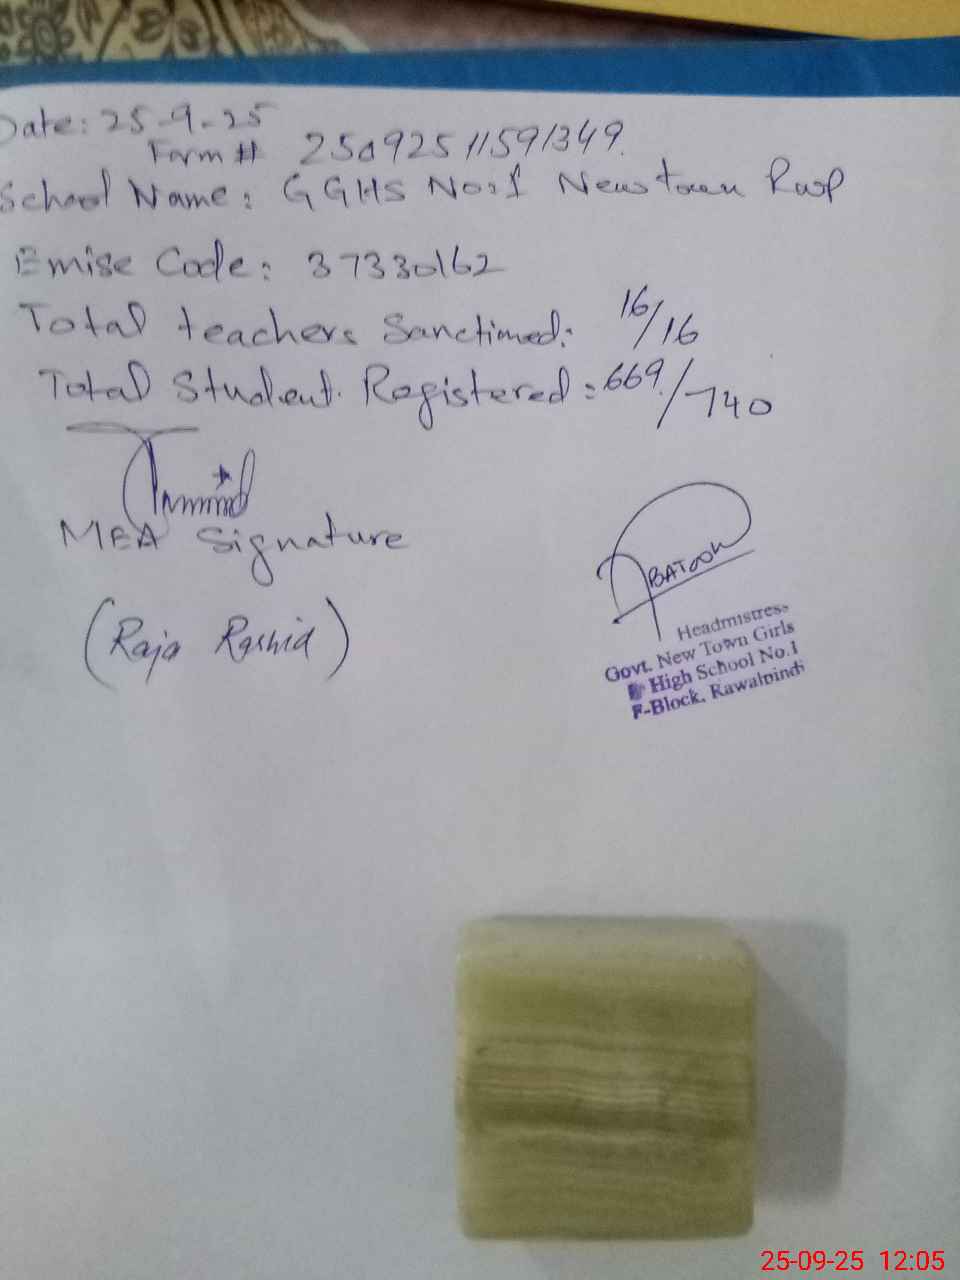 Date: 25-9-25
Form # 25092511591349.
School Name: GGHS No:1 Newtown Rwp
Emise Code: 37330162
Total teachers Sanctioned: 16/16
Total Student Registered: 669/740
MEA Signature
(Raja Rashid)
BATOOL
Headmistress
Govt. New Town Girls
High School No.1
F-Block, Rawalpindi
25-09-25 12:05